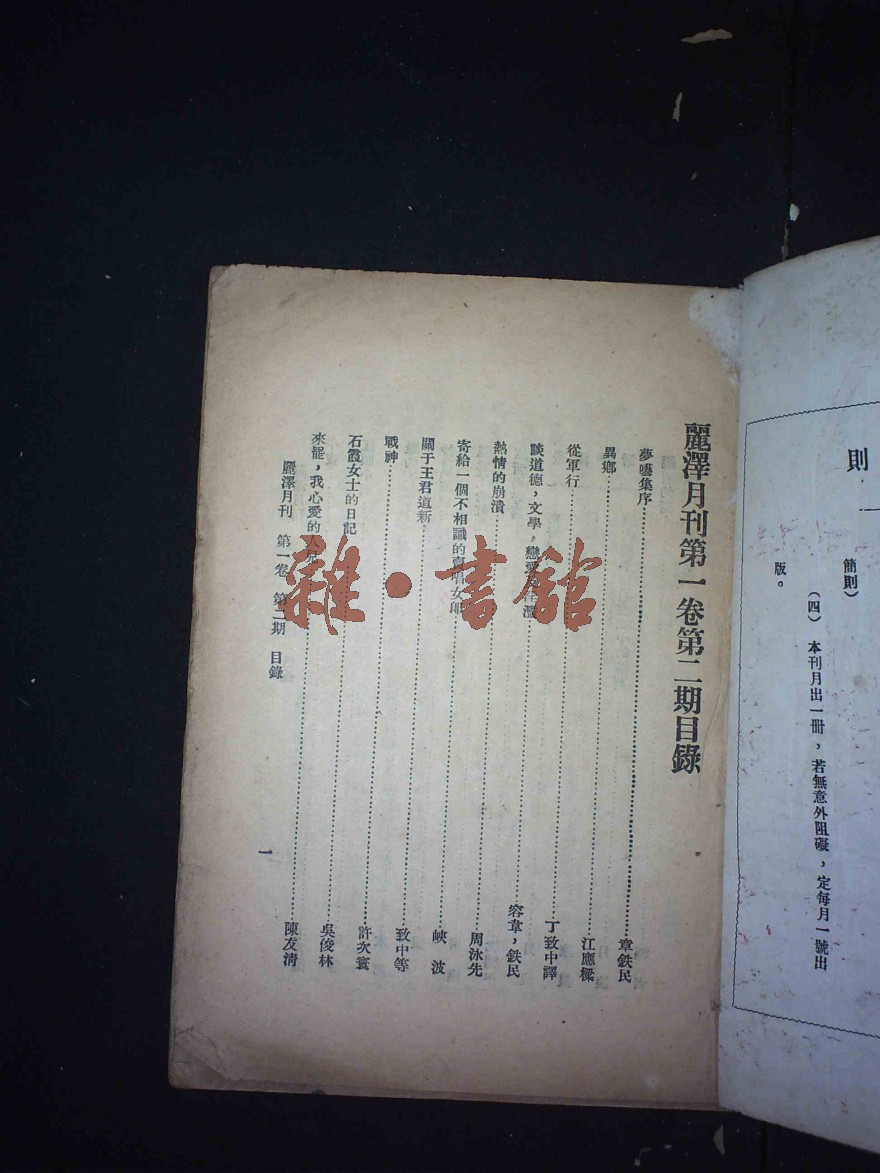 則
簡則）
（四） 本刊月出一冊，若無意外阻礙，定每月一號出
版。
麗澤月刊第一卷第二期目錄
夢囈集序 章鉄民
異鄉 江應樑
從軍行 丁致中譯
談道德，文學，戀愛 濫 容辜，鉄民
熱情的崩潰 周泳先
寄給一個不相識的賣唱女郎 峽 波
關于王君道新 致中等
戰神 許次寰
石霞女士的日記 吳俊林
來罷，我心愛的人兒 陳友清
麗澤月刊 第一卷 第二期 目錄
一
雜·書館